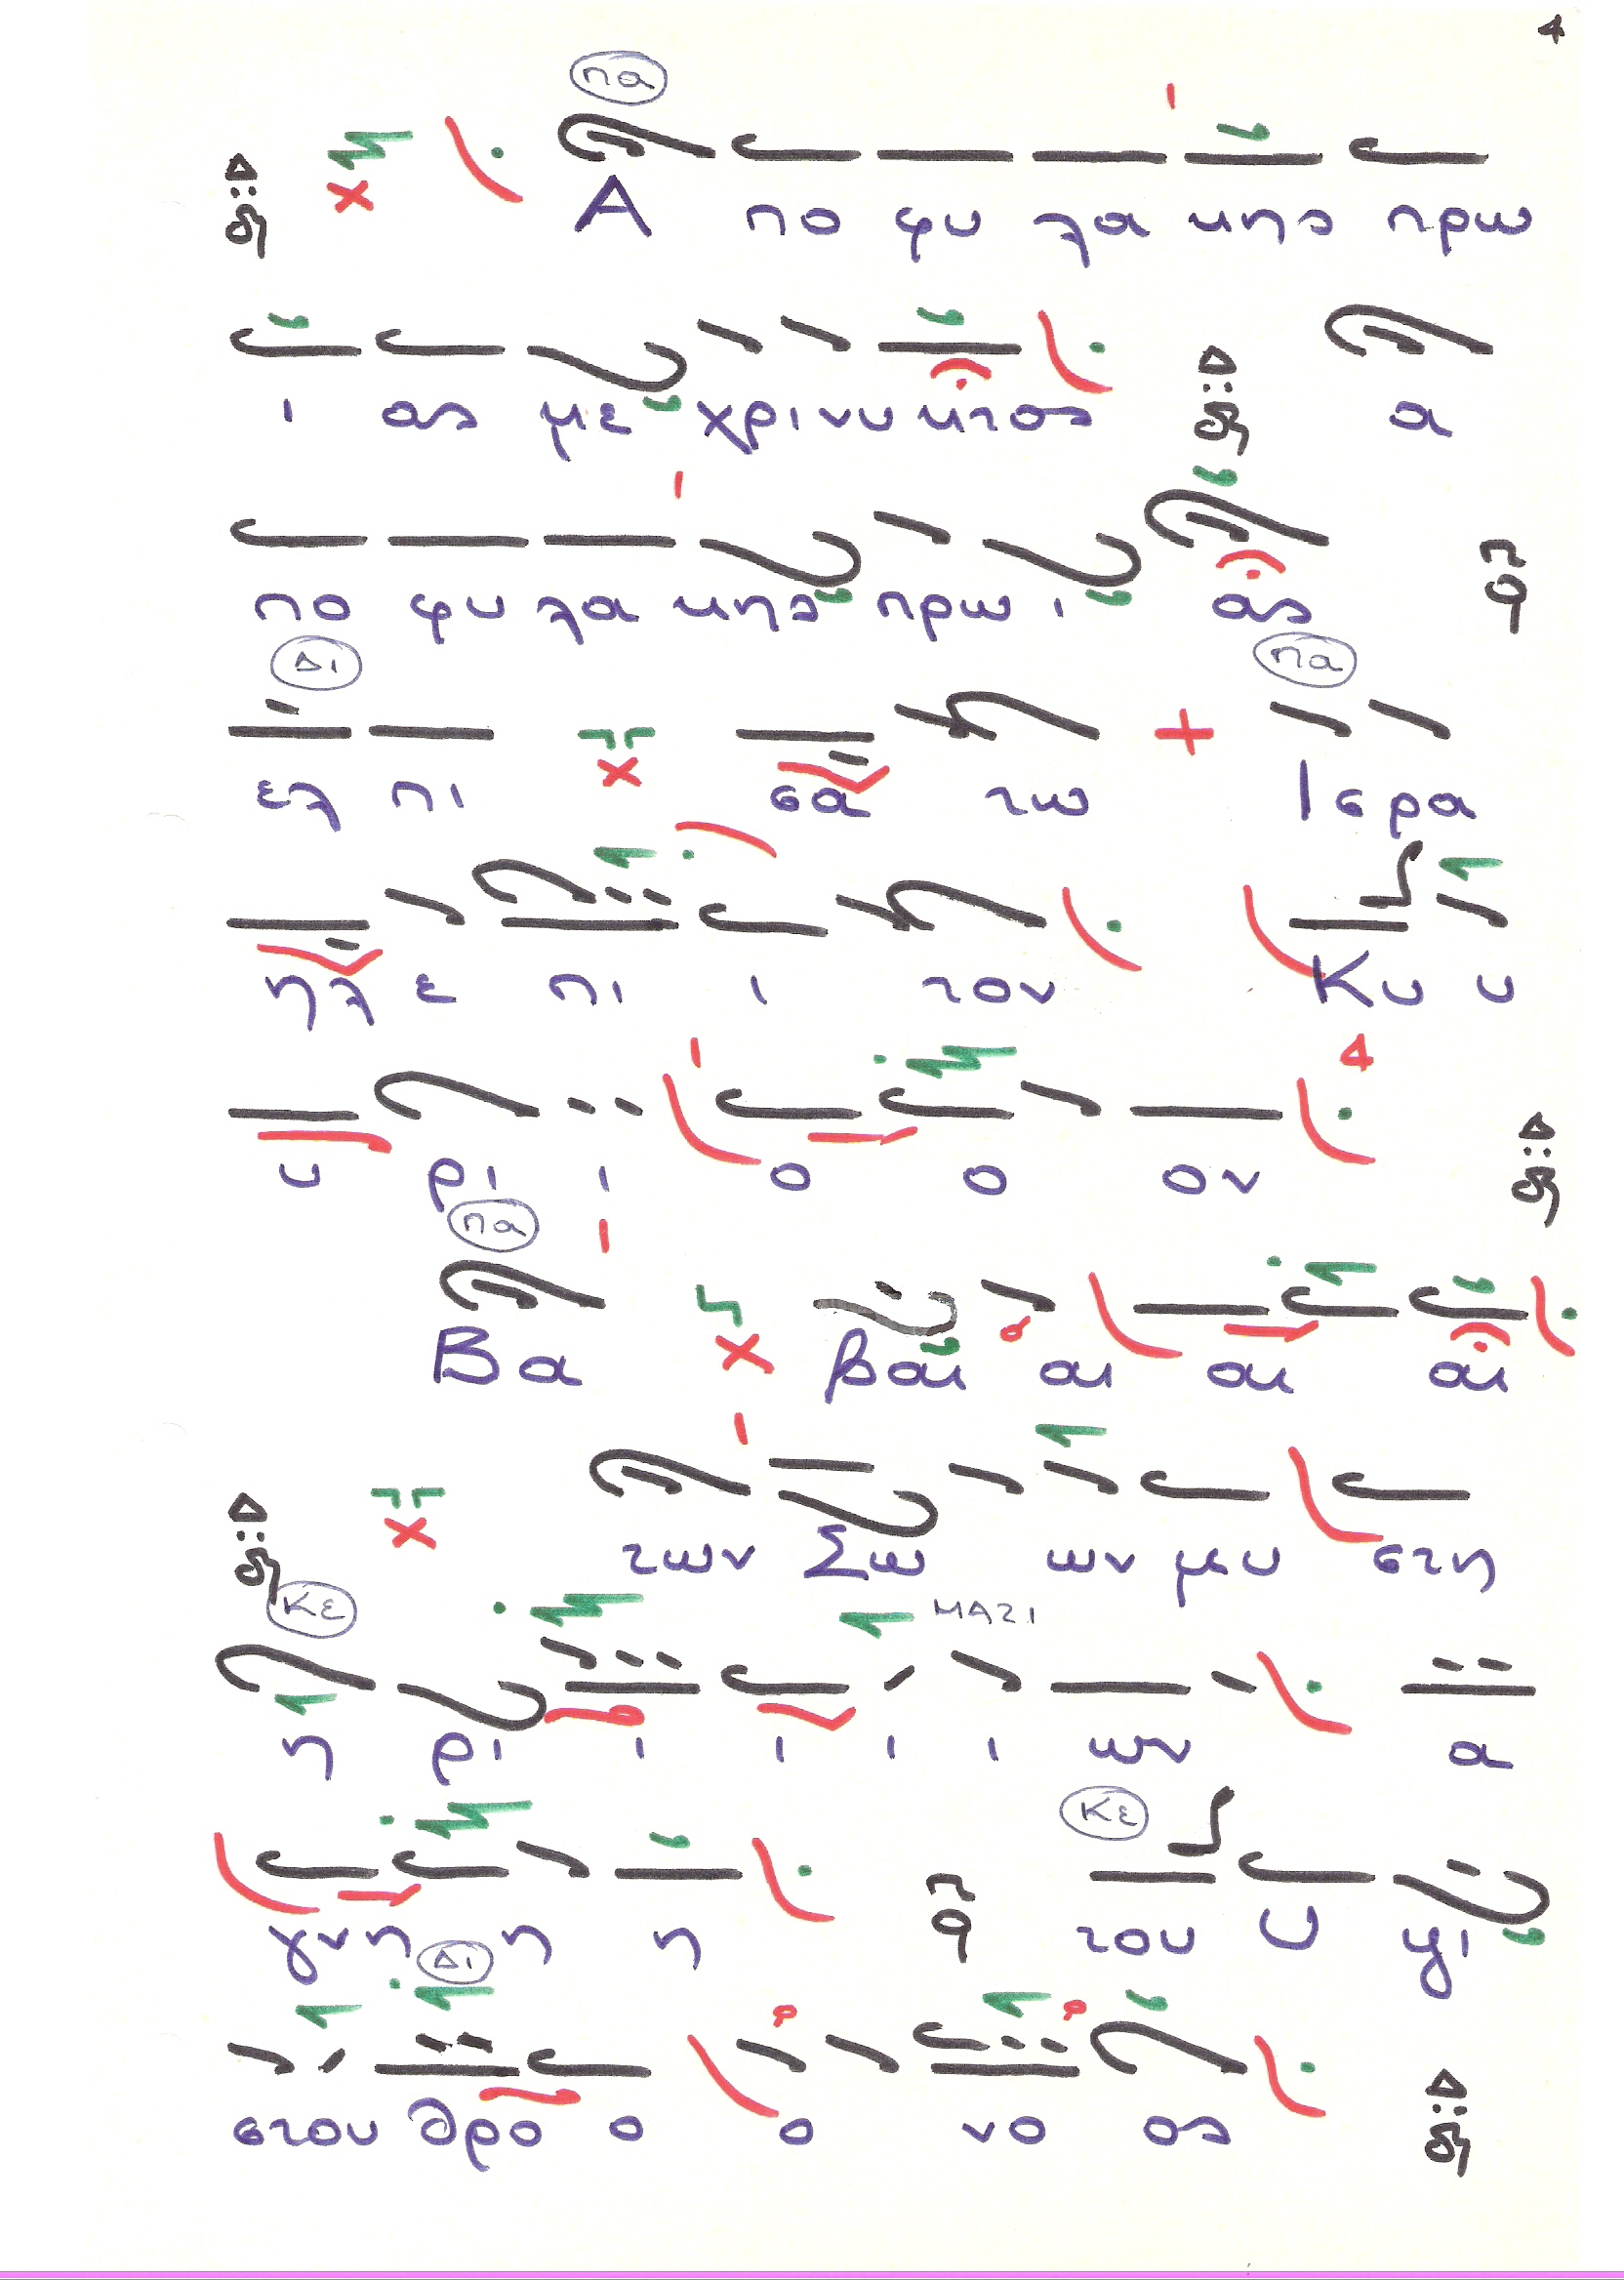 4
πα
Α πο φυ λα κης πρω
ι ας με χρι νυ κτος α
πο φυ λα κης πρω ι ας
Δι πα
ελ πι σα τω Ισρα
ηλ ε πι ι τον Κυ υ
4
υ ρι ι ο ο ον
πα
Βα βαι αι αι αι
των Σω ων μου στη
Κε ΜΑΖΙ
η ρι ι ι ι ι ων α
Κε
γνη η η του υ ψι
Δι
στου θρο ο ο νο ος